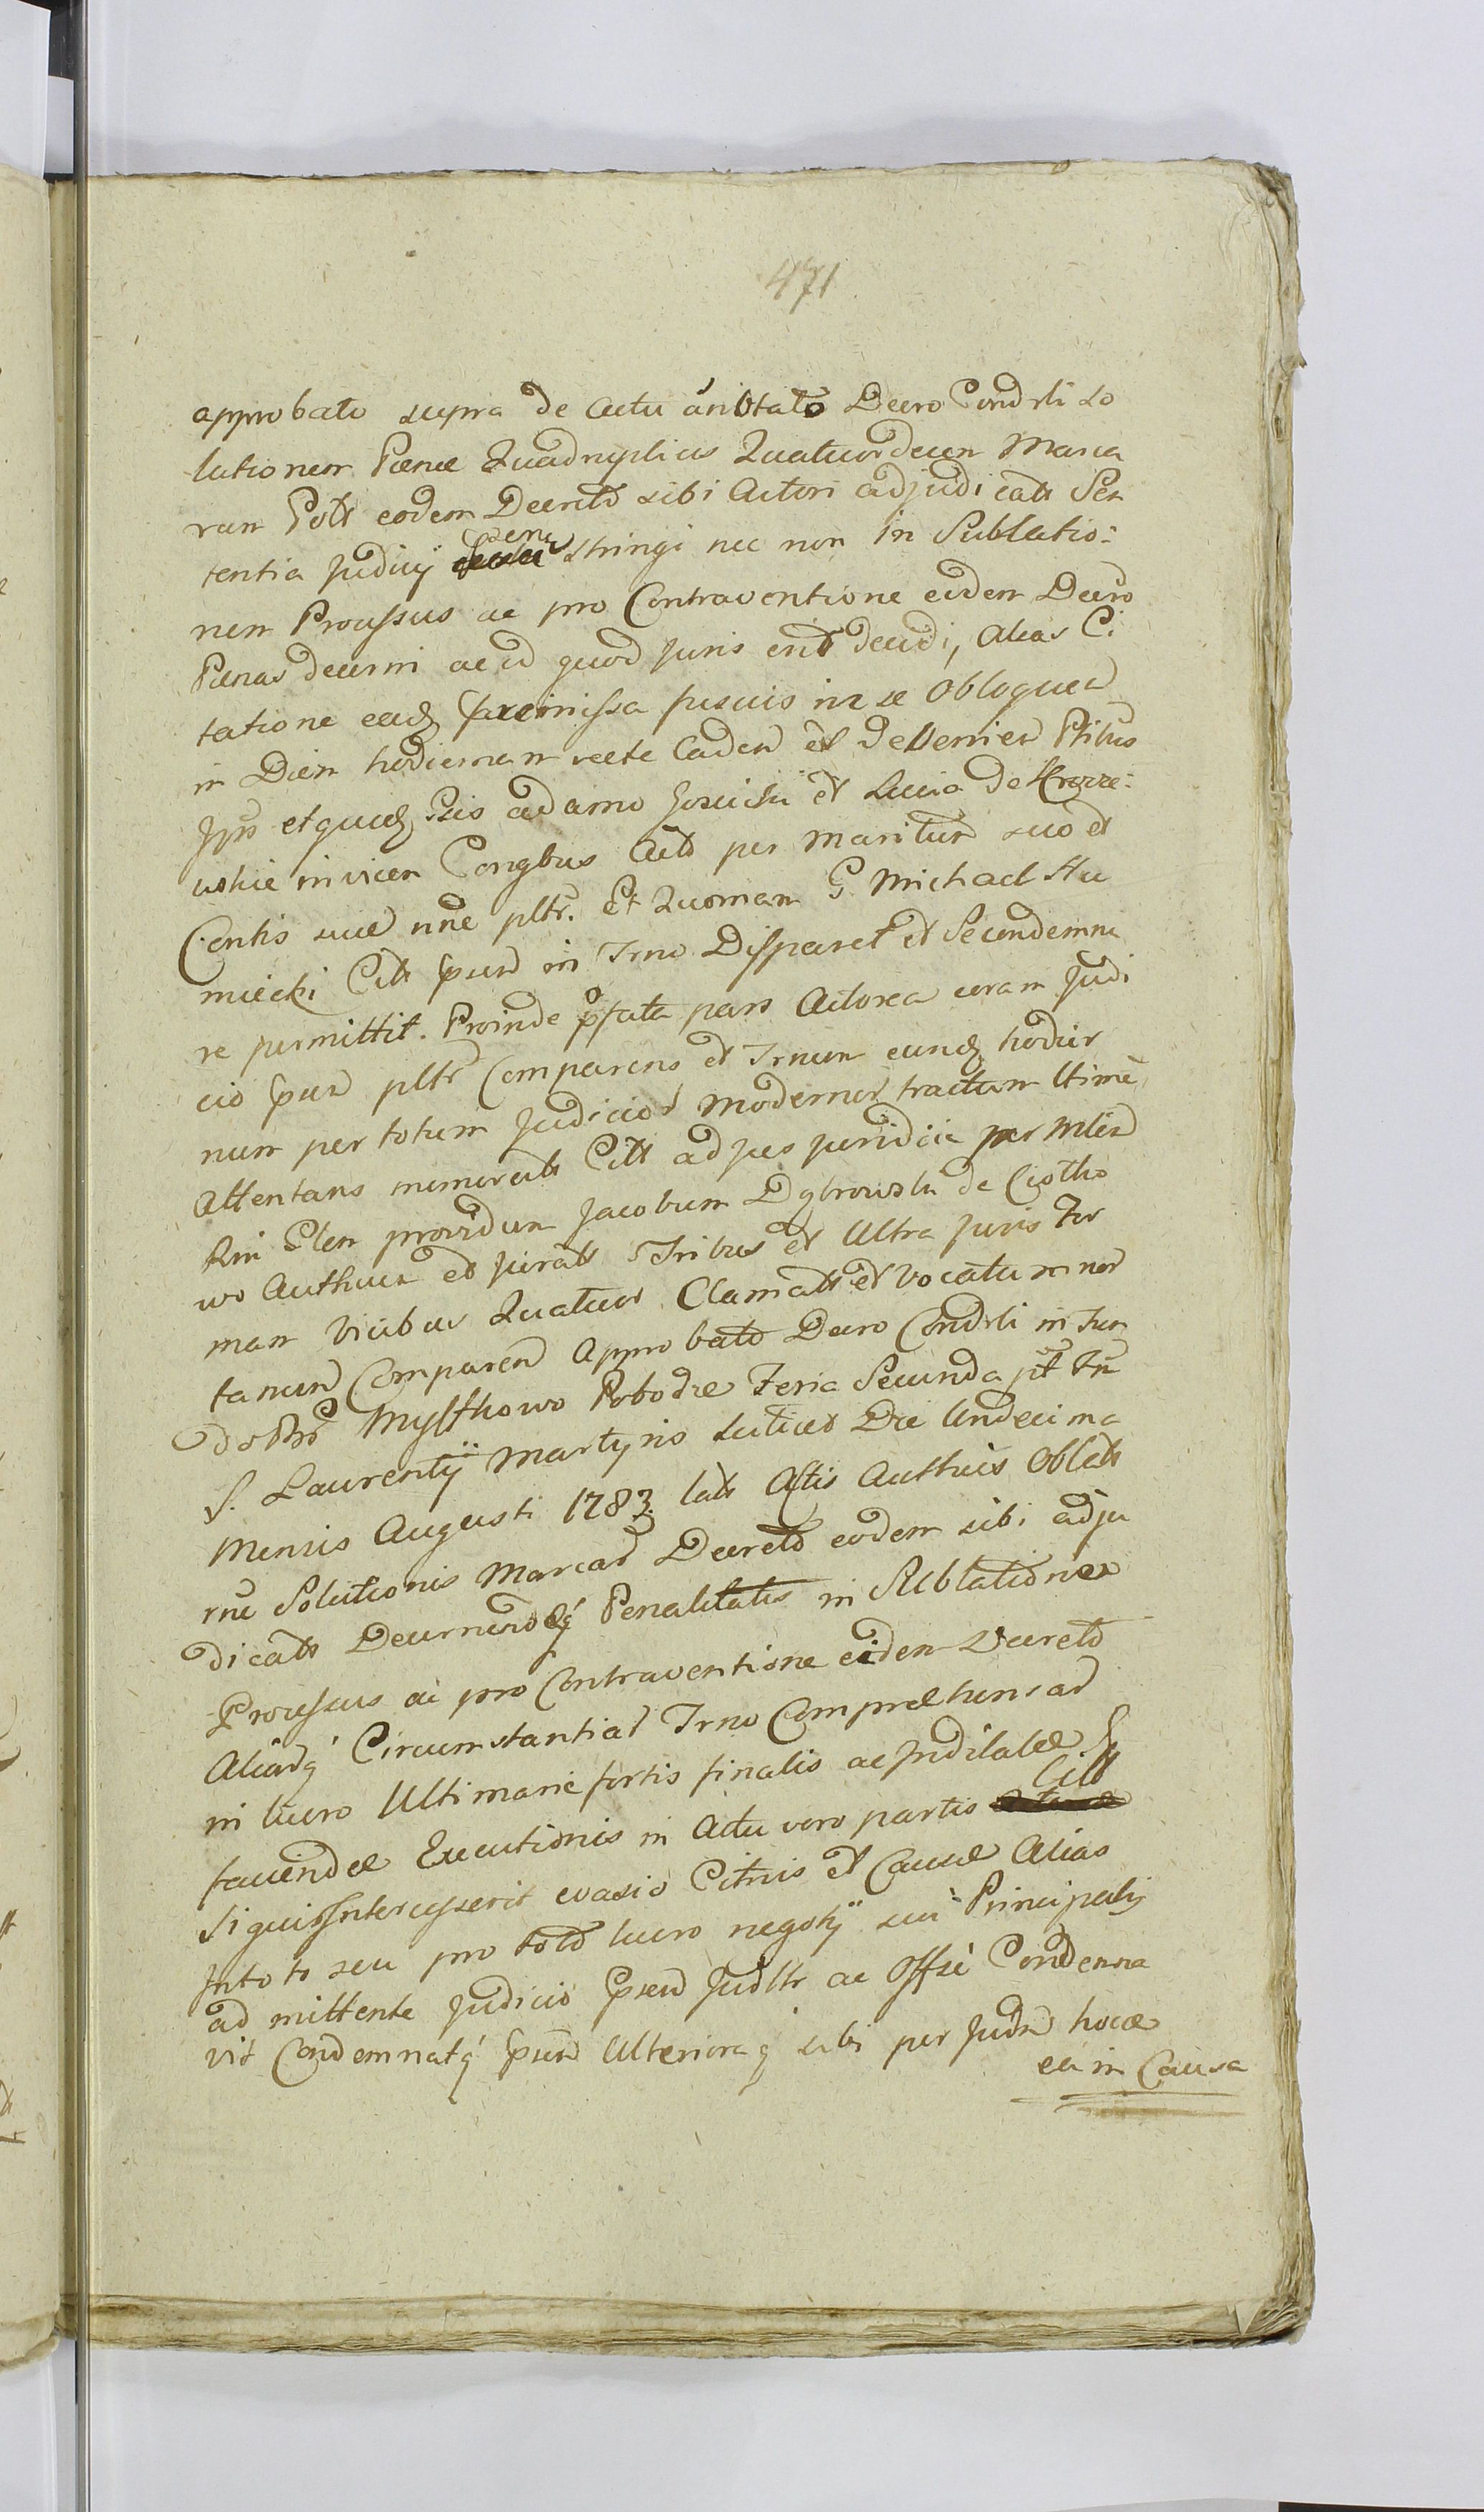 471
approbato supra de actu Decro Condrli so
lutionem Pænæ Quadruplicis Quatuordecem Marca
rum Polt eodem Decreto sibi Actori adjudicatt Sen
tentia Judicij stringi nec non in Sublatio:
nem Processus ac pro Contraventione eidem Decro
Pænas decerni ac id quod juris erit decidi, alias Ci
tatione præmissa in se Obloquen
in Diem hodiernam recte Caden et Ptibus
Ipsis et quidem Adamo et Lucia de
uskie invicem Congbus Actt per Maritum suo et
Contis suæ nne pltr. Et Quoniam G. Michael
miecki Citt psen in Trno Disparet et Se condemna
re permittit. Proinde pfata pars Actorea coram Judi
cio psen pltr Comparens et Trnum eundem hodier
num per totum Judicior modernor tractum ltime
Attentans memoratt Citt ad jus juridice per Mltem
Rni Glem providum Jacobum Dąbrowski de
wo Authum et juratt Tribus et Ultra juris For
mam Vicibus Quatuor Clamatt et Vocatum non
tamen Comparen Approbato Decro Condrli in Fun
do Bnr Mysthowo Pobodze Feria Secunda pt Ftu
S. Laurentÿ Martyris scilicet Die Undecima
Mensis Augusti 1783 latt Actis Authcis Oblatt
rne Solutionis Marcar Decreto eodem sibi adju
dicatt Decernendq Penalitatis in Sublationem
Processus ac pro Contraventione eidem Decreto
Aliarq Circumstantiar Trno Comprehensar
in lucro Ultimarie fortis finalis ac Indilatæ
faciendæ Executionis in Actu vero partis Citt
Si quis Intercesserit evasio Citnis et Causæ alias
Into to seu pro toto lucro negotÿ sui Principalis
admittente Judicio psen Judltr ac Offse Condemna
vit Condemnatq psen Ulteriora q sibi per Judm hocce
ea in Causa